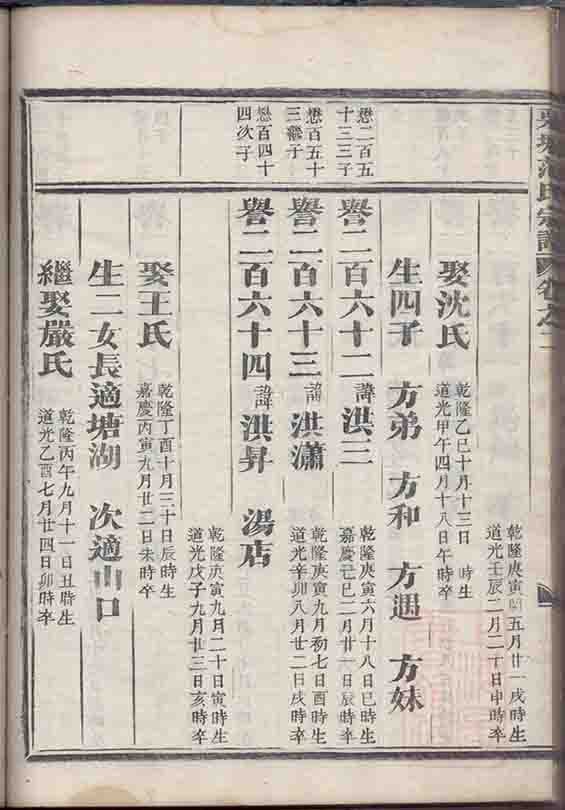 范氏宗譜 卷之二
乾隆庚寅閏五月廿一戌時生
道光壬辰二月二十日申時卒
娶沈氏
乾隆乙巳十月十三日 時生
道光甲午四月十八日午時卒
生四子 方弟 方和 方遇 方妹
懋二百五
十三三子
譽二百六十二 諱 洪三
乾隆庚寅六月十八日巳時生
嘉慶己巳二月廿一日辰時卒
懋百五十
三繼子
譽二百六十三 諱 洪瀟
乾隆庚寅九月初七日酉時生
道光辛卯八月廿二日戌時卒
懋百四十
四次子
譽二百六十四 諱 洪昇 湯店
乾隆庚寅九月二十日寅時生
道光戊子九月廿三日亥時卒
娶王氏
乾隆丁酉十月三十日辰時生
嘉慶丙寅九月廿二日未時卒
生二女長適塘湖 次適山口
繼娶嚴氏
乾隆丙午九月十一日丑時生
道光乙酉七月廿四日卯時卒